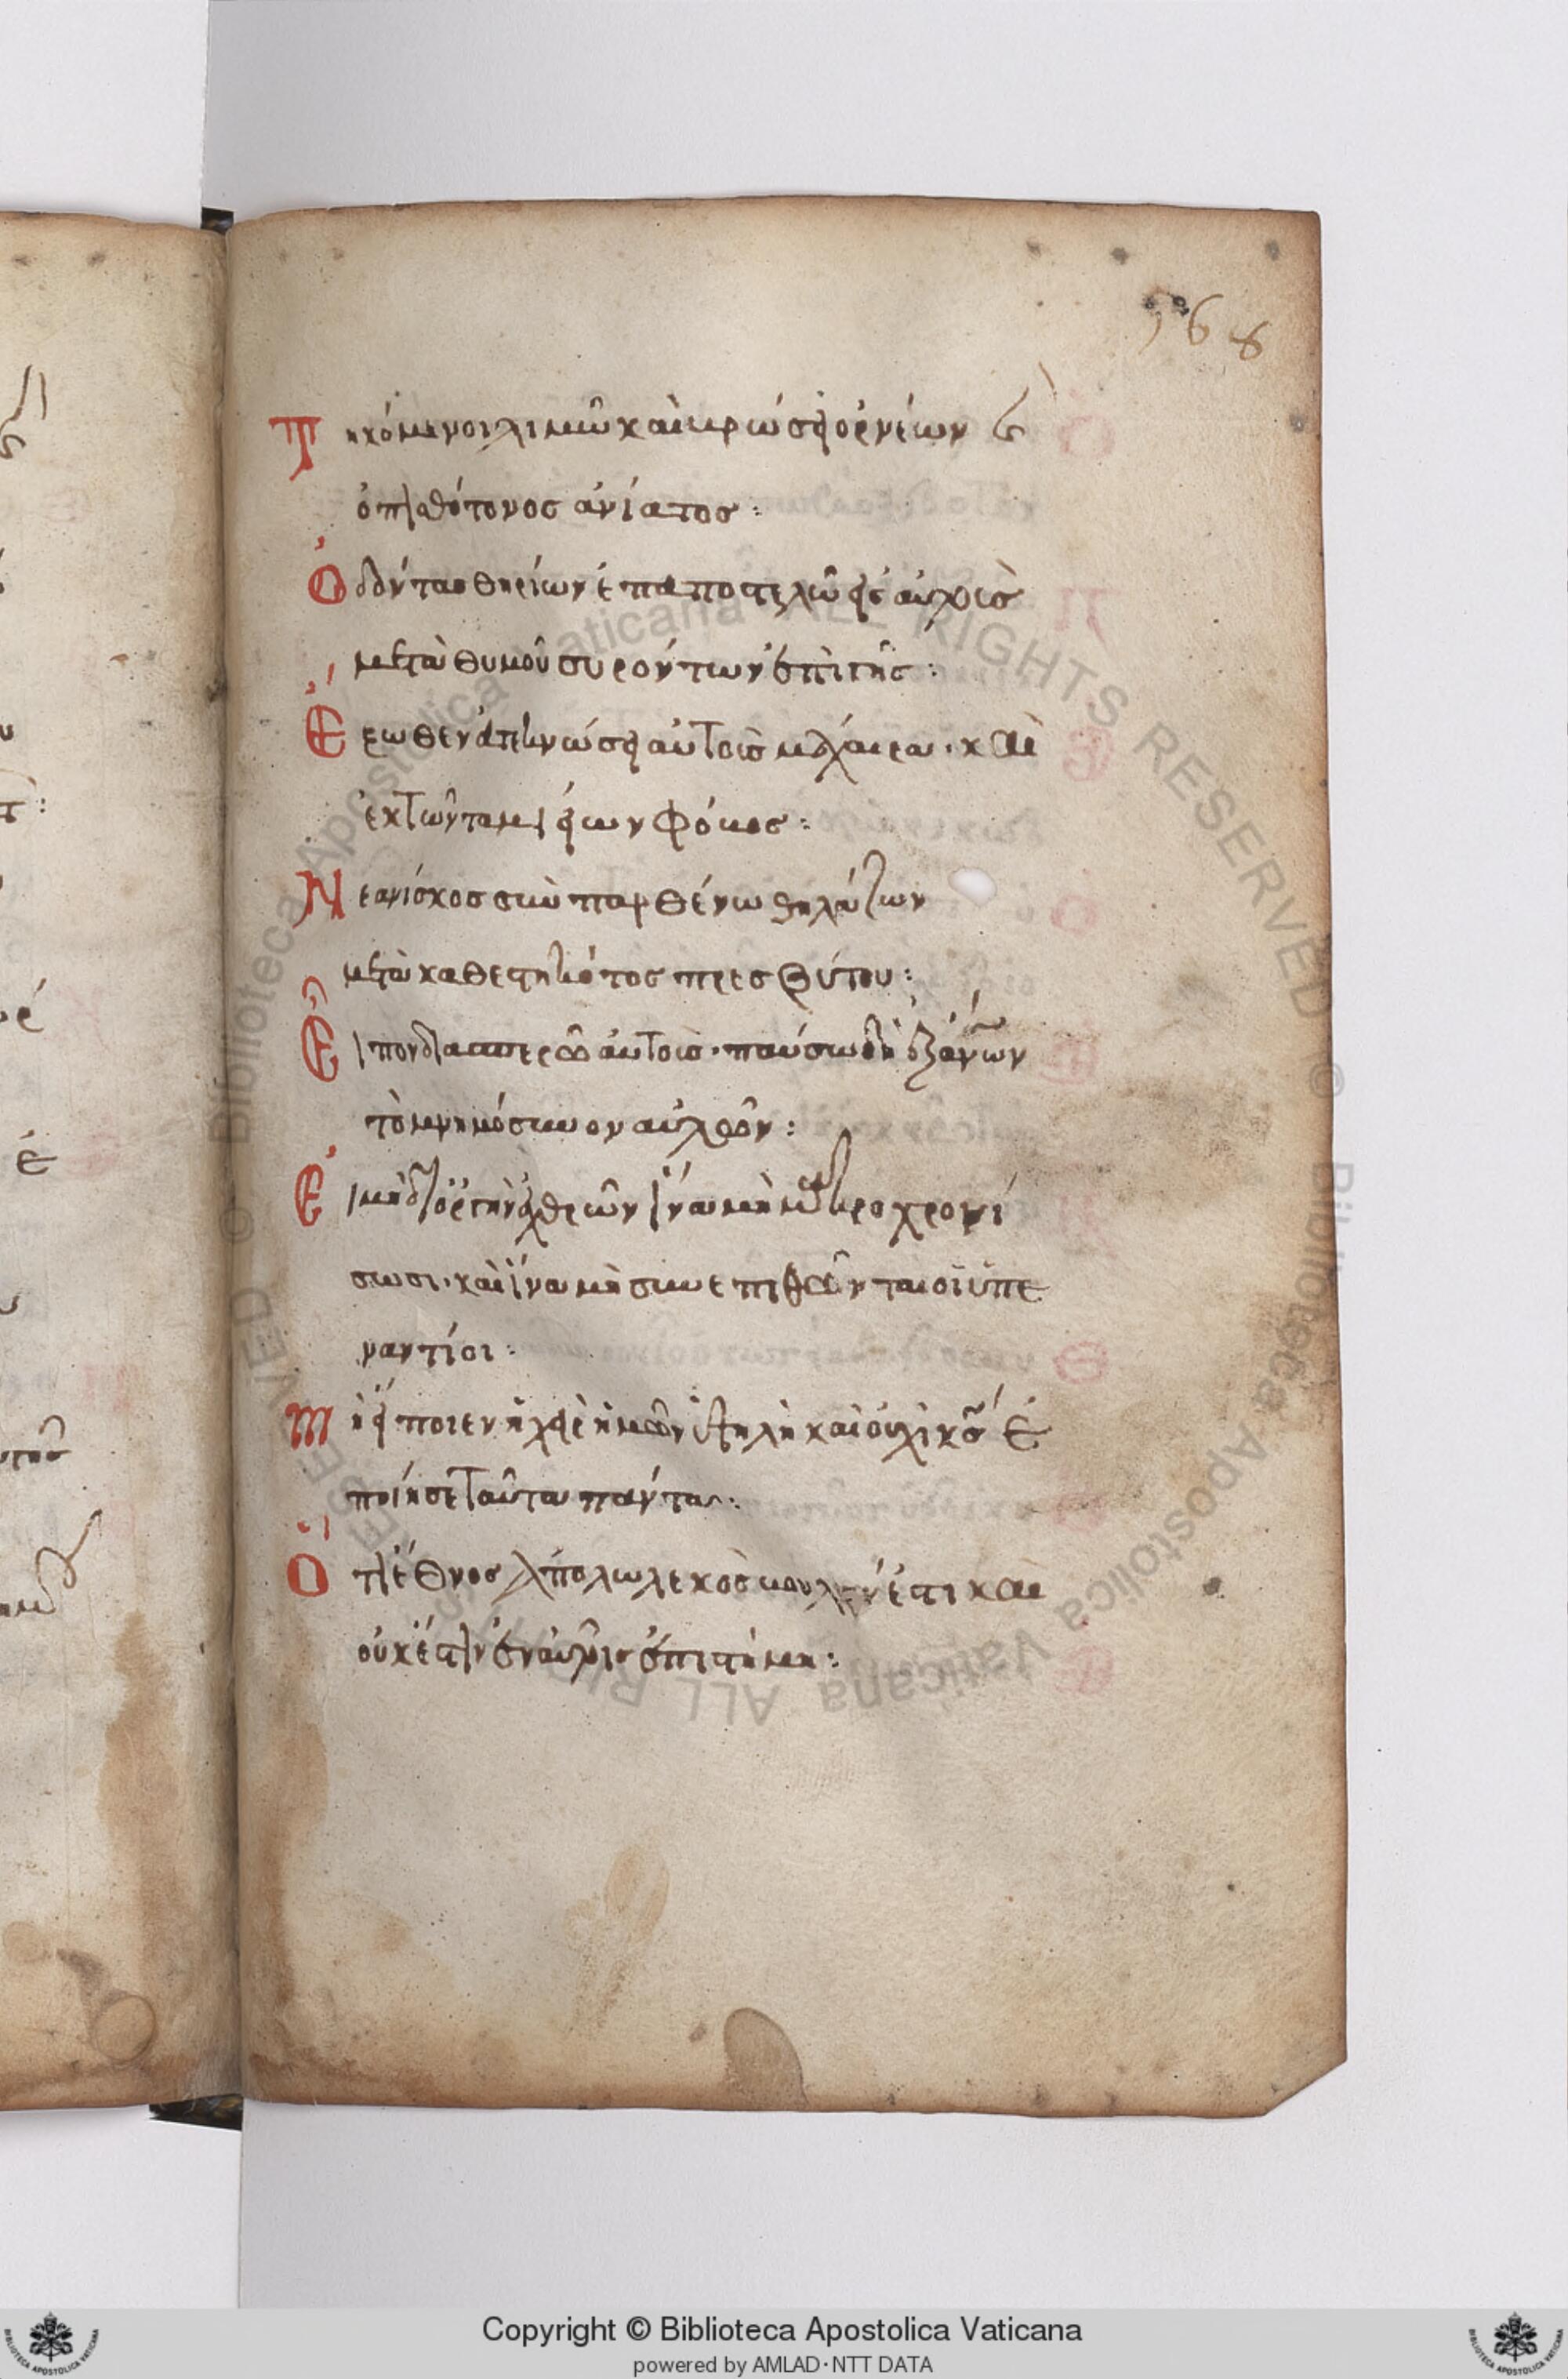 168
Τηκόμενοι λιμῶ καὶ βρώσει ὀρνέων καὶ
ὀπισθότονος ἀνίατος:
Ὀδόντας θηρίων ἐπαποστελῶ εἰς αὐτοὺς
μετὰ θυμοῦ συρόντων ἐπὶ γῆς:
Ἔξωθεν ἀτεκνώσει αὐτοὺς μάχαιρα· καὶ
ἐκ τῶν ταμιείων φόβος:
Νεανίσκος σὺν παρθένω θηλάζων
μετὰ καθεστηκότος πρεσβύτου:
Εἶπον διασπερῶ αὐτοὺς· παύσω δὴ ἐξ ἀνων
τὸ μνημόσυνον αὐτῶν:
Εἰ μὴ δι ὀργὴν ἐχθρῶν ἵνα μὴ μακροχρονί
σωσι· καὶ ἵνα μὴ συνεπιθῶνται οἱ ὑπε
ναντίοι:
Μὴ εἴπωσιν ἡ χεὶρ ἡμῶν ἡ ὑψηλὴ καὶ οὐχὶ κς ἐ
ποίησε ταῦτα πάντα:
Ὅτι ἔθνος ἀπολωλεκὸς βουλὴν ἐστι καὶ
οὐκ ἔστιν ἐν αὐτοῖς ἐπιστήμη:
Copyright © Biblioteca Apostolica Vaticana
powered by AMLAD·NTT DATA